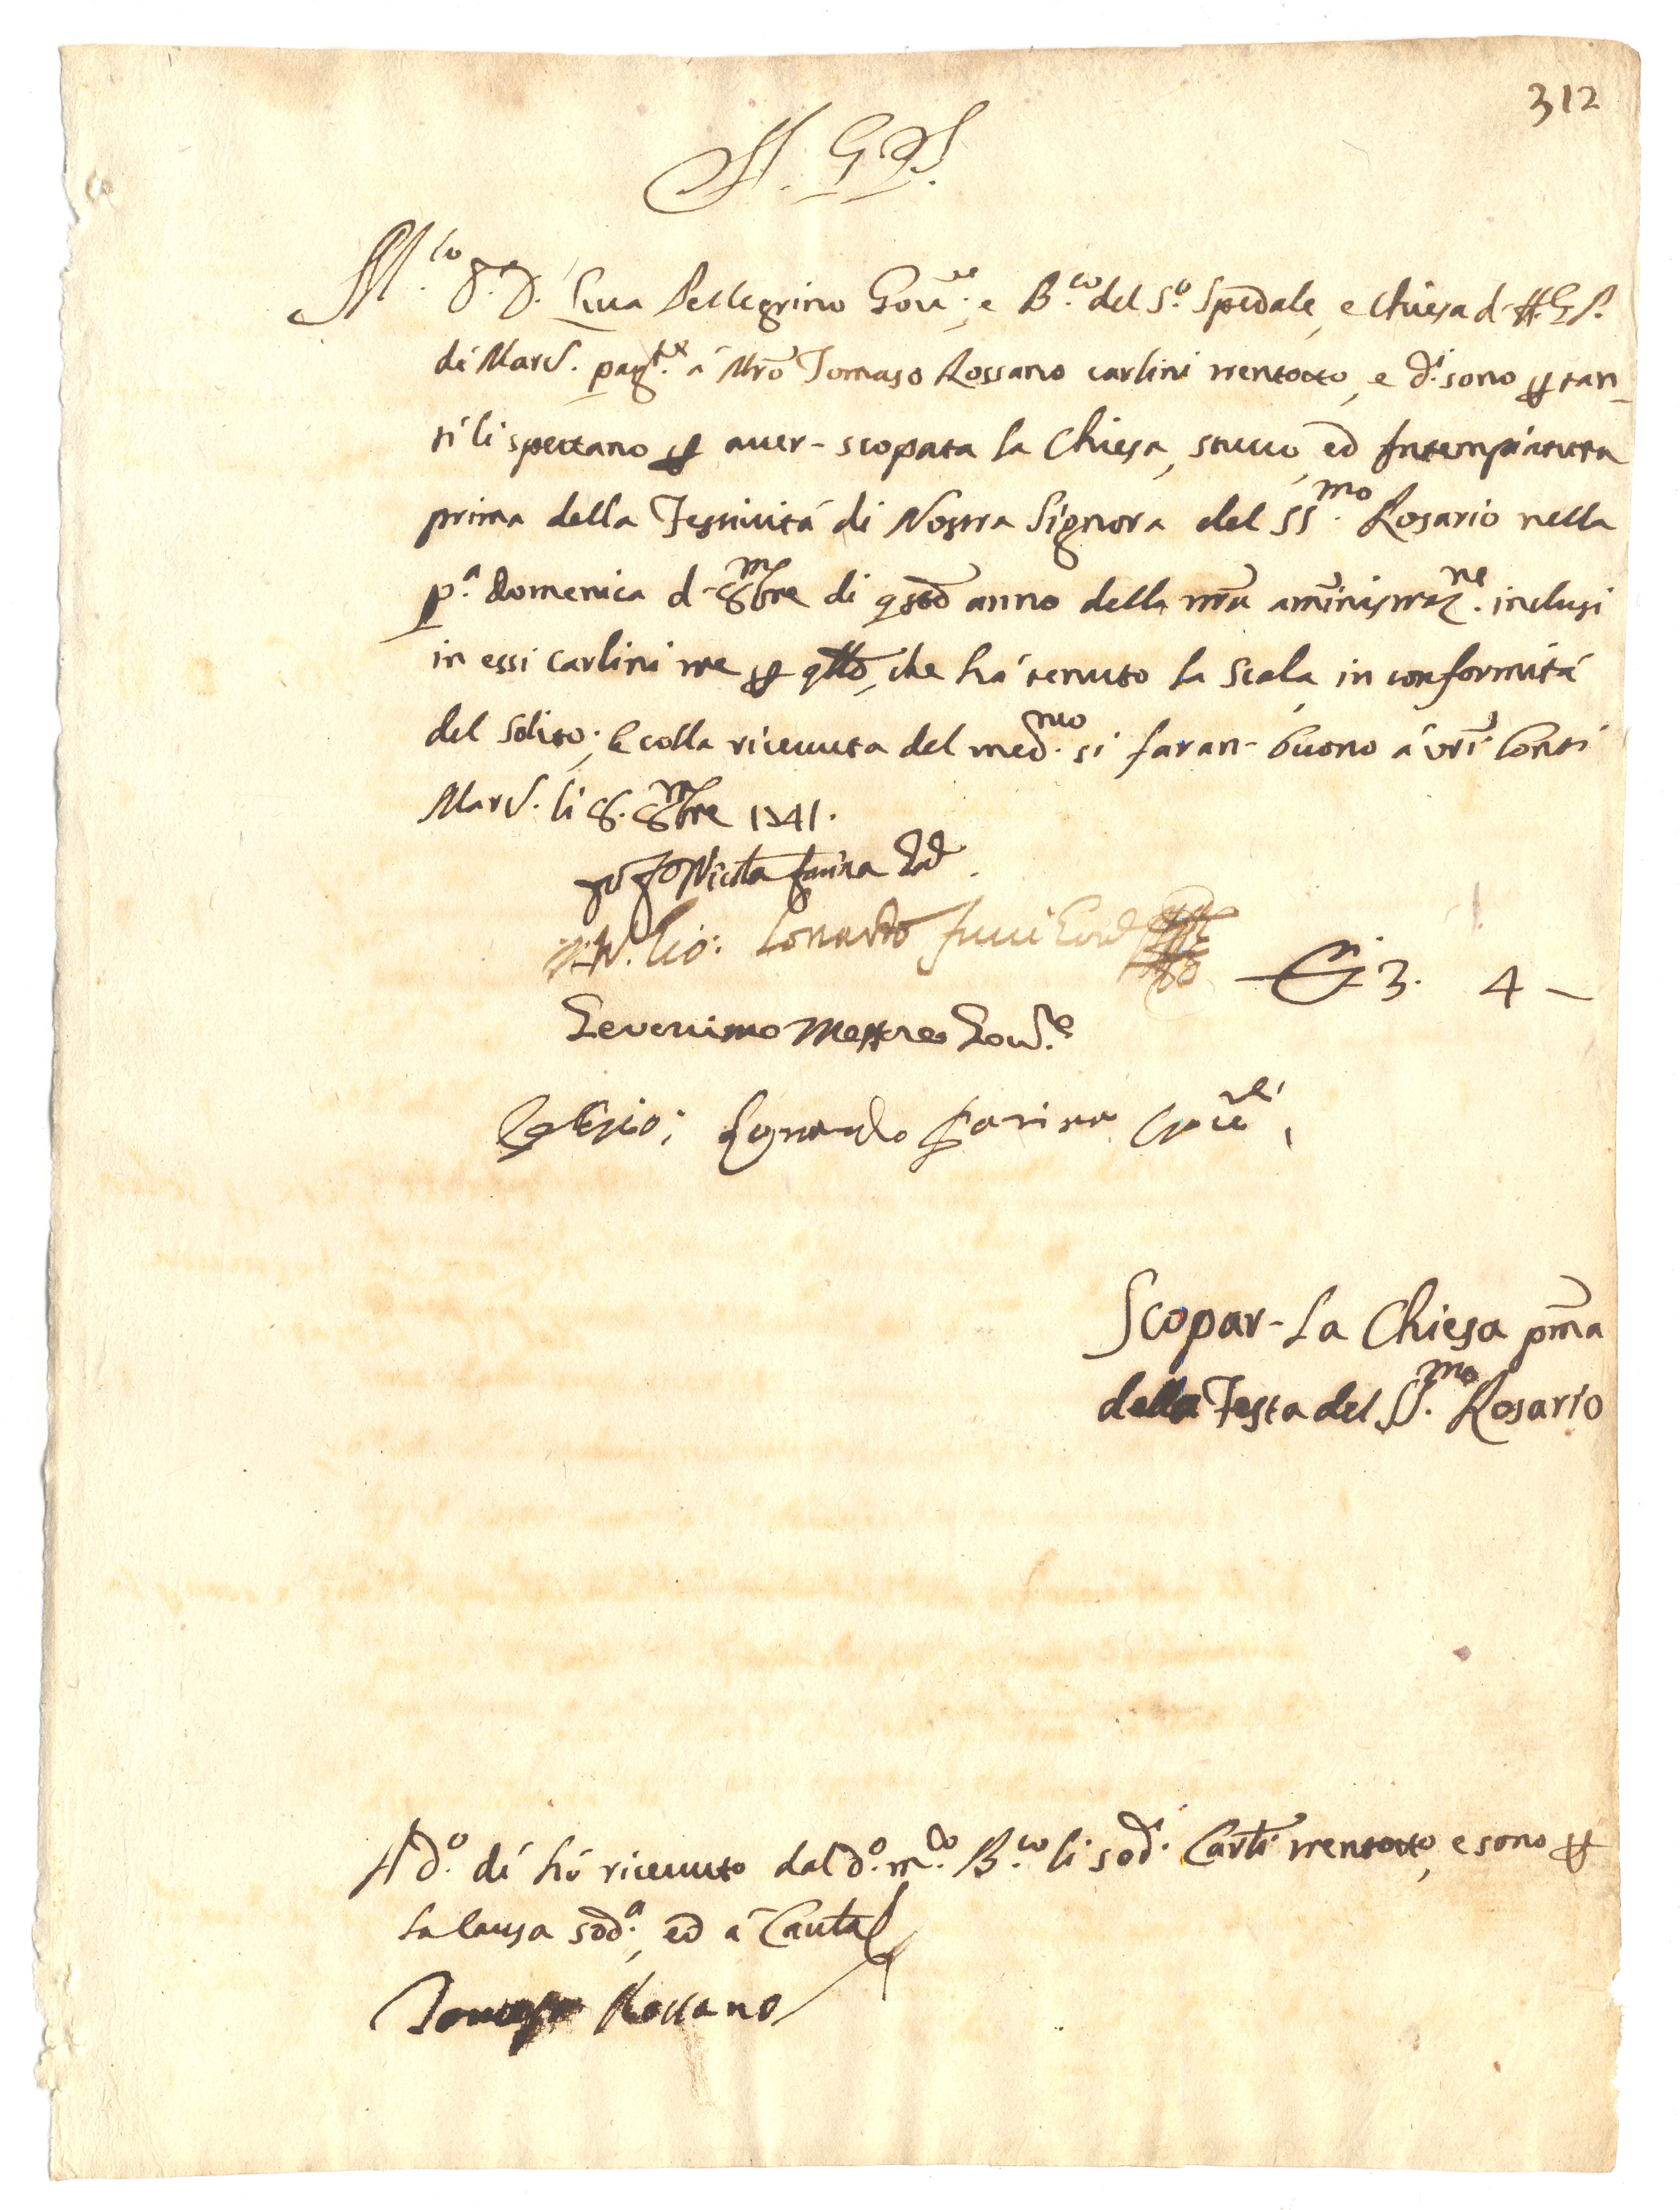 312
A. G. P.
M.co Sr. D. Luca Pellegrino Gov.re e B.co del S.o Spedale, e Chiesa d. A.G.P.
di Mard. pag.te à Mro Tomaso Rossano carlini trentotto, e d.i sono p tan_
ti li spettano p aver- scopata la Chiesa, stucco, ed Intempiatura
prima della Festività di Nostra Signora del SS.mo Rosario nella
p.a Domenica d- 8bre di qsto anno della nra amministraz.ne inclusi
in essi carlini tre p qllo, che hà tenuto la Scala, in conformità
del solito; e colla ricevuta del med.mo si faran- buono à vri Conti
Mard. li 8. 8bre 1741.
Nicola Farina
Gio: Lonardo
3. 4 –
Severino Mastreo Gov.e
Gio: Lonardo Farina
Scopar- La Chiesa pma
della Festa del SS.mo Rosario
A d.o dì hò ricevuto dal d.o m.co B.co li sod.i Carlni trentotto, e sono p
la causa sod.a, ed à Cautal
Tomaso Rossano